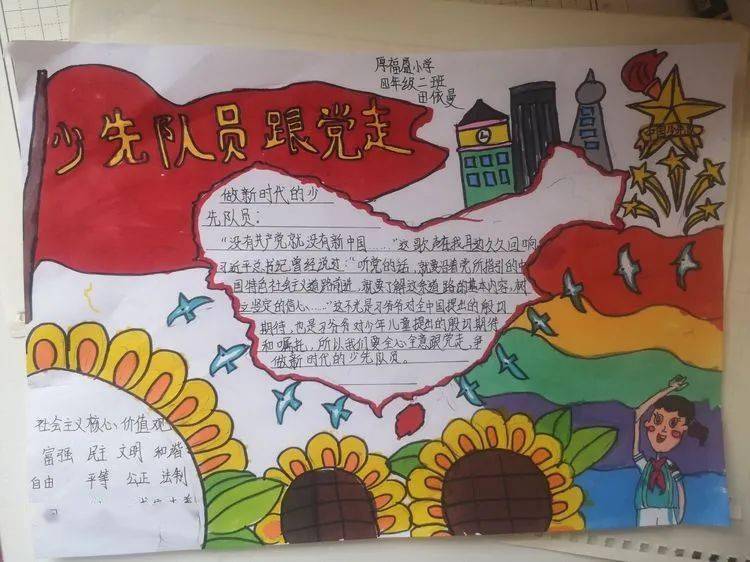 厚福盛小学
四年级二班
田依曼
少先队员跟党走
做新时代的少
先队员：
“没有共产党就没有新中国……”这歌声在我耳边久久回响
习近平总书记曾经说过：“听党的话，就要沿着党所指引的中
国特色社会主义道路前进，就要了解这条道路的基本内容，树
立坚定的信心……”这不光是习爷爷对全中国提出的殷切
期待，也是习爷爷对少年儿童提出的殷切期待
和嘱托，所以我们要全心全意跟党走，争
做新时代的少先队员。
社会主义核心价值观
富强 民主 文明 和谐
自由 平等 公正 法制